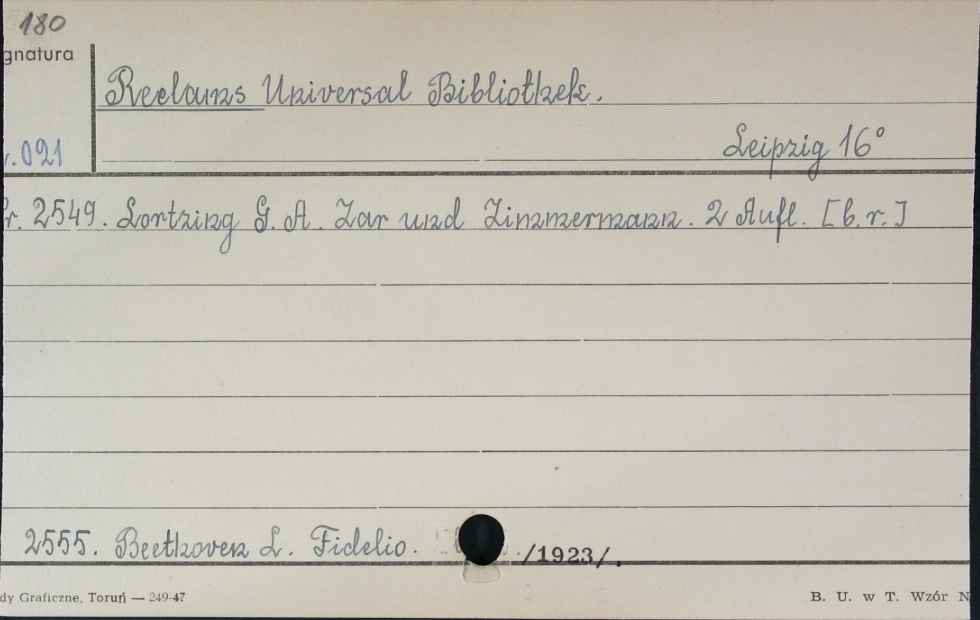 180
gnatura
Reclams Universal Bibliothek.
Leipzig 16°
r. 021
r. 2549. Lortzing G. A. Zar und Zimmermann. 2 Aufl. [b.r.]
2555. Beethoven L. Fidelio. /1923/.
dy Graficzne, Toruń — 249-47
B. U. w T. Wzór N